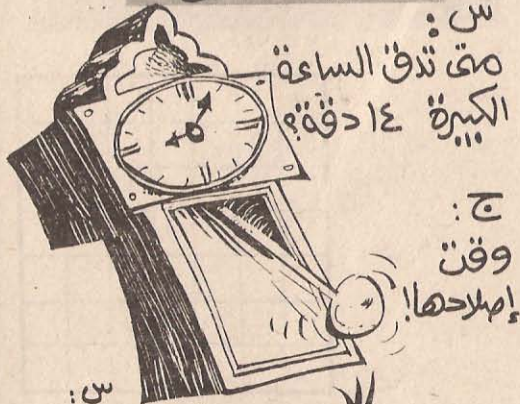 س:
متى تدق الساعة
الكبيرة ١٤ دقة؟
ج:
وقت
إصلاحها!
س: